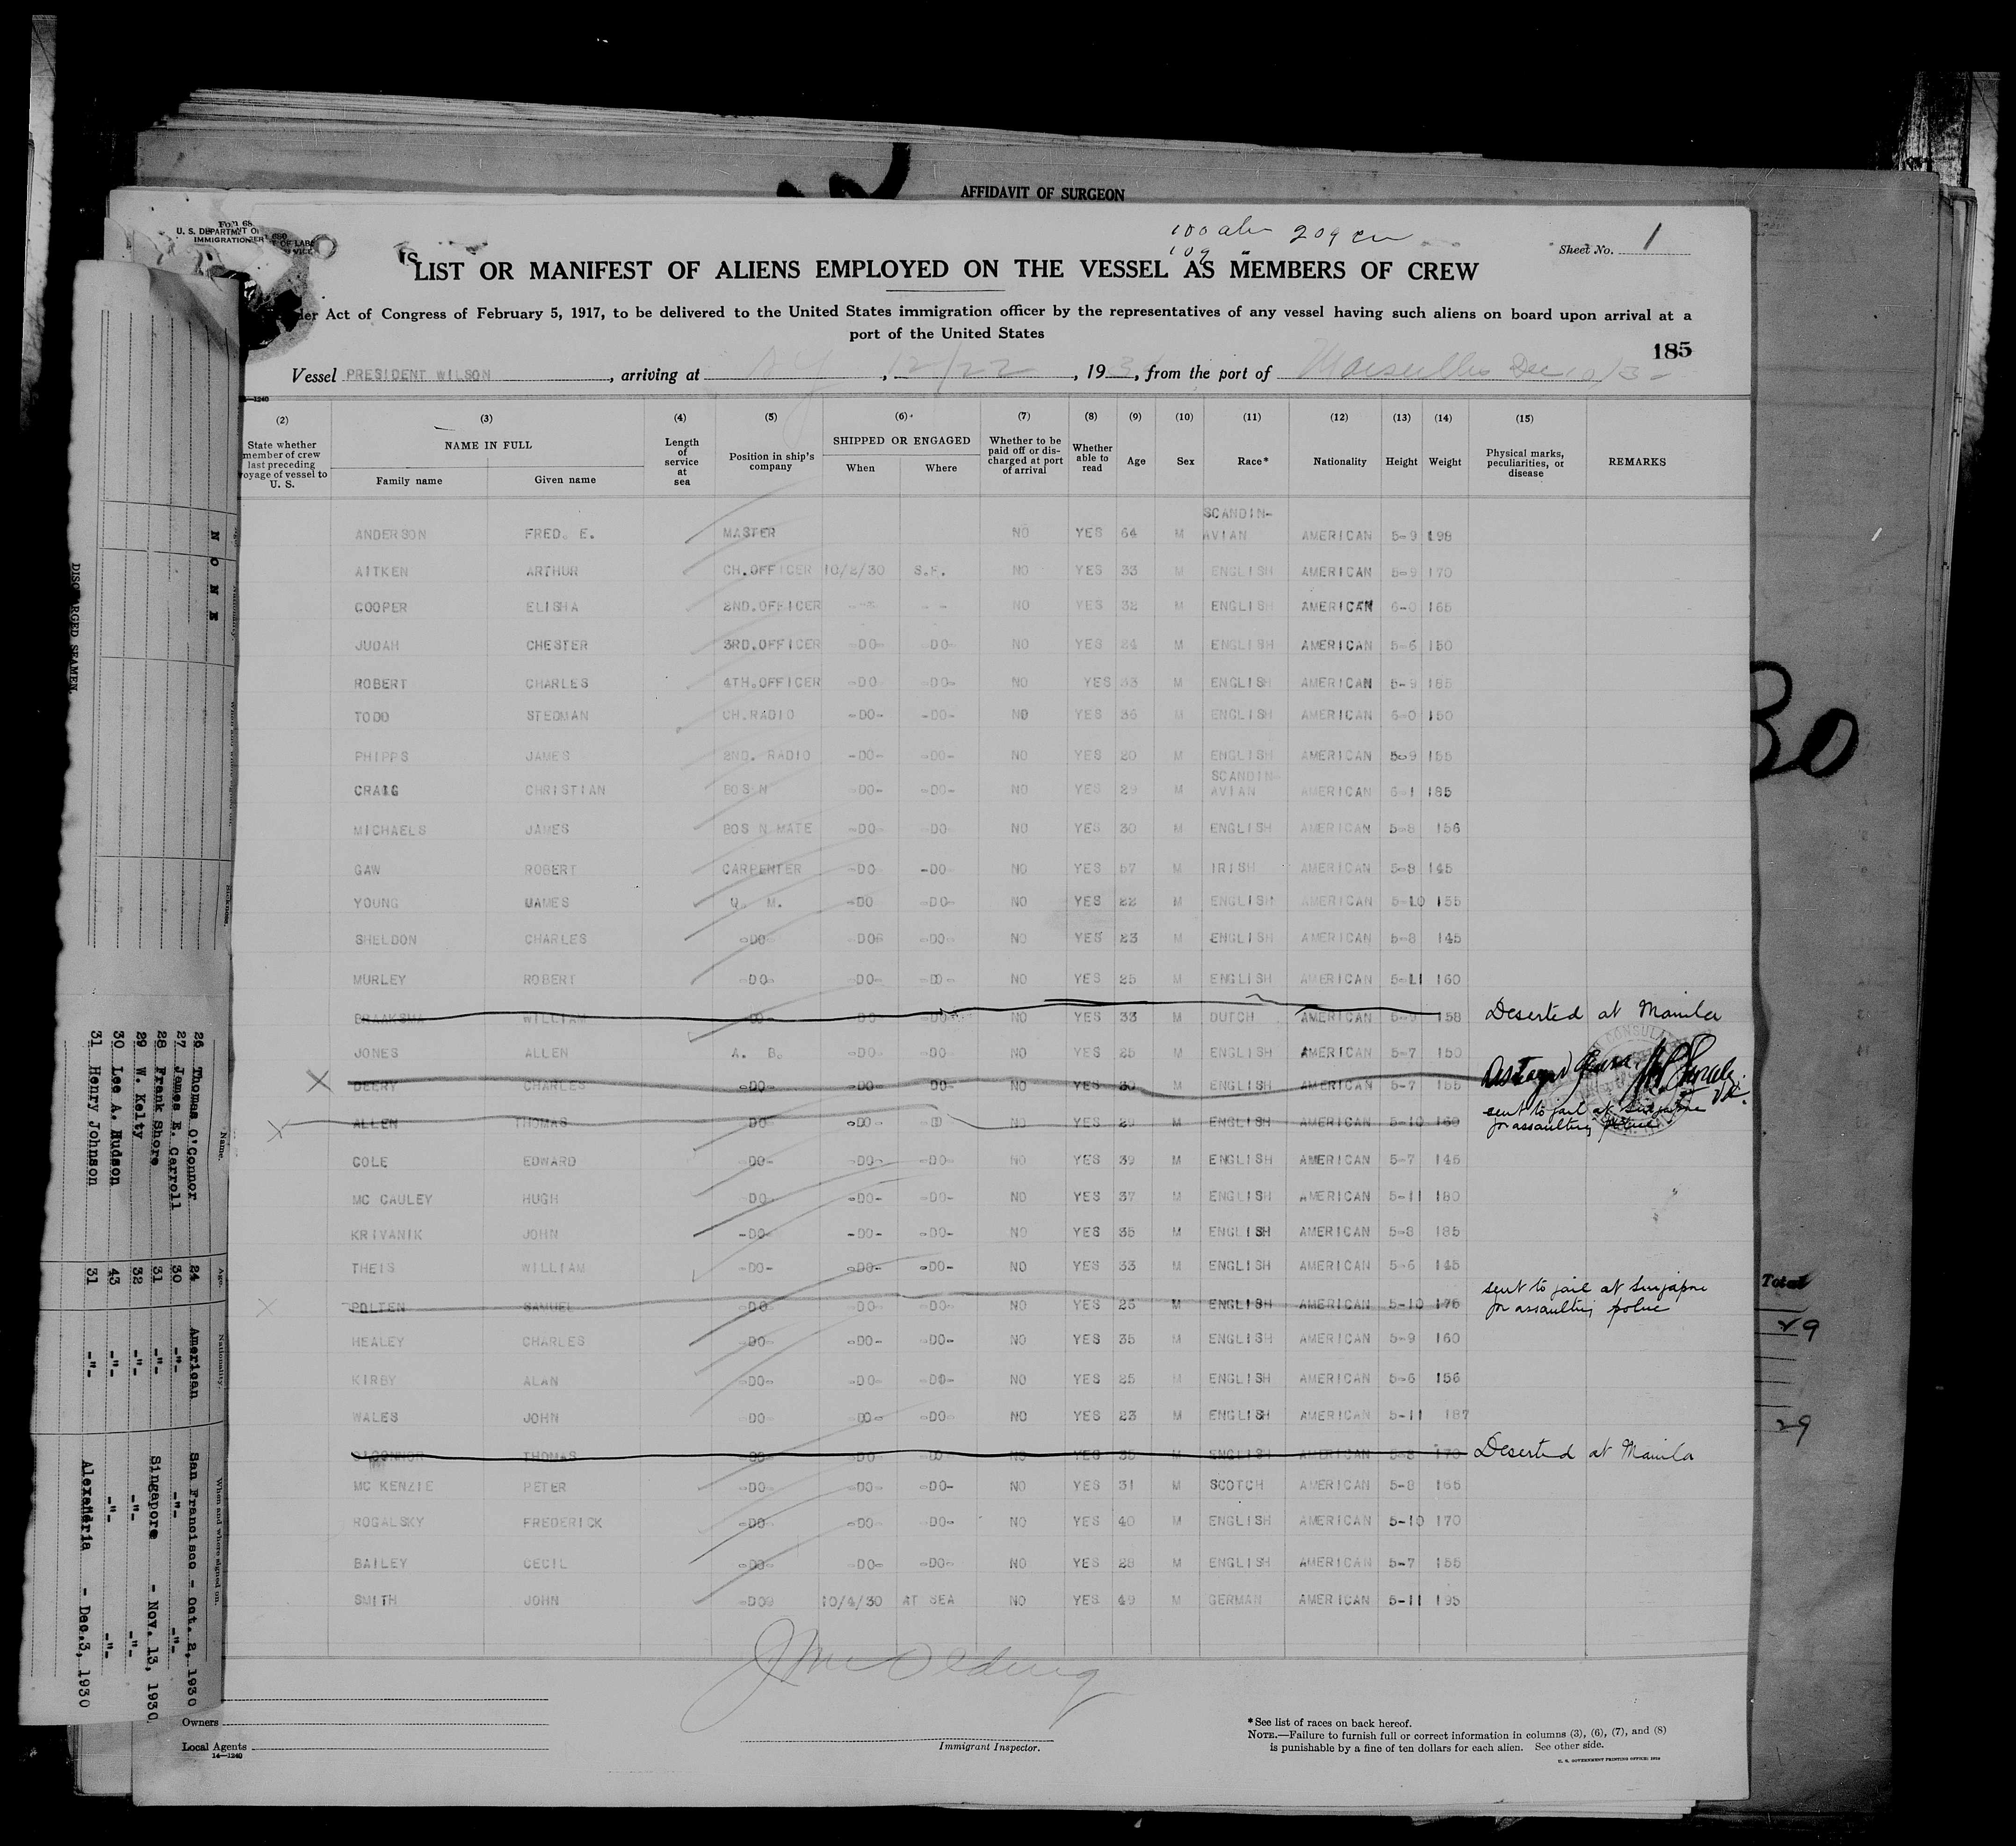 AFFIDAVIT OF SURGEON
U. S. DEPARTMENT OF LABOR
209
Sheet No. 1
LIST OR MANIFEST OF ALIENS EMPLOYED ON THE VESSEL AS MEMBERS OF CREW
Act of Congress of February 5, 1917, to be delivered to the United States immigration officer by the representatives of any vessel having such aliens on board upon arrival at a
port of the United States
185
Vessel PRESIDENT WILSON, arriving at N Y, 12/22, 193, from the port of Marseilles Dec 10/3
(2) (3) (4) (5) (6) (7) (8) (9) (10) (11) (12) (13) (14) (15)
State whether member of crew last preceding voyage of vessel to U. S.
NAME IN FULL
Family name Given name
Length of service at sea
Position in ship's company
SHIPPED OR ENGAGED
When Where
Whether to be paid off or discharged at port of arrival
Whether able to read
Age Sex Race* Nationality Height Weight
Physical marks, peculiarities, or disease
REMARKS
ANDERSON FRED. E. MASTER NO YES 64 M SCANDIN-AVIAN AMERICAN 5-9 198
AITKEN ARTHUR CH.OFFICER 10/2/30 S.F. NO YES 33 M ENGLISH AMERICAN 5-9 170
COOPER ELISHA 2ND.OFFICER NO YES 32 M ENGLISH AMERICAN 6-0 165
JUDAH CHESTER 3RD.OFFICER -DO- -DO- NO YES 24 M ENGLISH AMERICAN 5-6 150
ROBERT CHARLES 4TH.OFFICER -DO -DO- NO YES 33 M ENGLISH AMERICAN 5-9 185
TODD STEDMAN CH.RADIO -DO- -DO- NO YES 36 M ENGLISH AMERICAN 6-0 150
PHIPPS JAMES 2ND. RADIO -DO- -DO- NO YES 20 M ENGLISH AMERICAN 5-9 155
CRAIG CHRISTIAN BOS N -DO- -DO- NO YES 29 M SCANDIN-AVIAN AMERICAN 6-1 185
MICHAELS JAMES BOS N MATE -DO- -DO NO YES 30 M ENGLISH AMERICAN 5-8 156
GAW ROBERT CARPENTER -DO -DO- NO YES 57 M IRISH AMERICAN 5-8 145
YOUNG JAMES Q. M. -DO -DO- NO YES 22 M ENGLISH AMERICAN 5-10 155
SHELDON CHARLES -DO- -DO -DO- NO YES 23 M ENGLISH AMERICAN 5-8 145
MURLEY ROBERT -DO- -DO- -DO- NO YES 25 M ENGLISH AMERICAN 5-11 160
BRAAKSMA WILLIAM -DO- DO -DO- NO YES 33 M DUTCH AMERICAN 5-9 158 Deserted at Manila
JONES ALLEN A. B. -DO- -DO- NO YES 25 M ENGLISH AMERICAN 5-7 150
X DEERY CHARLES -DO- -DO- DO- NO YES 30 M ENGLISH AMERICAN 5-7 155
X ALLEN THOMAS DO -DO -DO NO YES 29 M ENGLISH AMERICAN 5-10 160 sent to jail at Singapore
for assaulting police
COLE EDWARD -DO- -DO- -DO- NO YES 39 M ENGLISH AMERICAN 5-7 145
MC CAULEY HUGH DO- -DO- -DO- NO YES 37 M ENGLISH AMERICAN 5-11 180
KRIVANIK JOHN -DO- -DO- -DO- NO YES 35 M ENGLISH AMERICAN 5-8 185
THEIS WILLIAM -DO- -DO- -DO- NO YES 33 M ENGLISH AMERICAN 5-6 145
X POLTEN SAMUEL -DO -DO -DO NO YES 25 M ENGLISH AMERICAN 5-10 175 sent to jail at Singapore
for assaulting police
HEALEY CHARLES -DO- -DO- -DO- NO YES 35 M ENGLISH AMERICAN 5-9 160
KIRBY ALAN -DO- -DO- -DO- NO YES 25 M ENGLISH AMERICAN 5-6 156
WALES JOHN DO -DO- -DO- NO YES 23 M ENGLISH AMERICAN 5-11 187
O'CONNOR THOMAS -DO- -DO -DO NO YES 35 M ENGLISH AMERICAN 5-8 170 Deserted at Manila
MC KENZIE PETER -DO- -DO- -DO- NO YES 31 M SCOTCH AMERICAN 5-8 165
ROGALSKY FREDERICK -DO- -DO- -DO- NO YES 40 M ENGLISH AMERICAN 5-10 170
BAILEY CECIL -DO- -DO- -DO- NO YES 28 M ENGLISH AMERICAN 5-7 155
SMITH JOHN -DO 10/4/30 AT SEA NO YES 49 M GERMAN AMERICAN 5-11 195
Owners
Local Agents
14—1240
Immigrant Inspector.
*See list of races on back hereof.
NOTE.—Failure to furnish full or correct information in columns (3), (6), (7), and (8)
is punishable by a fine of ten dollars for each alien. See other side.
U. S. GOVERNMENT PRINTING OFFICE: 1929
DISCHARGED SEAMEN.
NONE
Name. Age. Nationality. When and where signed on.
26 Thomas O'Connor 24 American San Francisco - Oct. 2, 1930
27 James E. Carroll 30 -"- -"- -"-
28 Frank Shore 31 -"- Singapore - Nov. 13, 1930.
29 W. Kelty 32 -"- -"- -"-
30 Lee A. Hudson 43 -"- -"- -"-
31 Henry Johnson 31 -"- Alexandria - Dec.3, 1930
30
Total
29
29